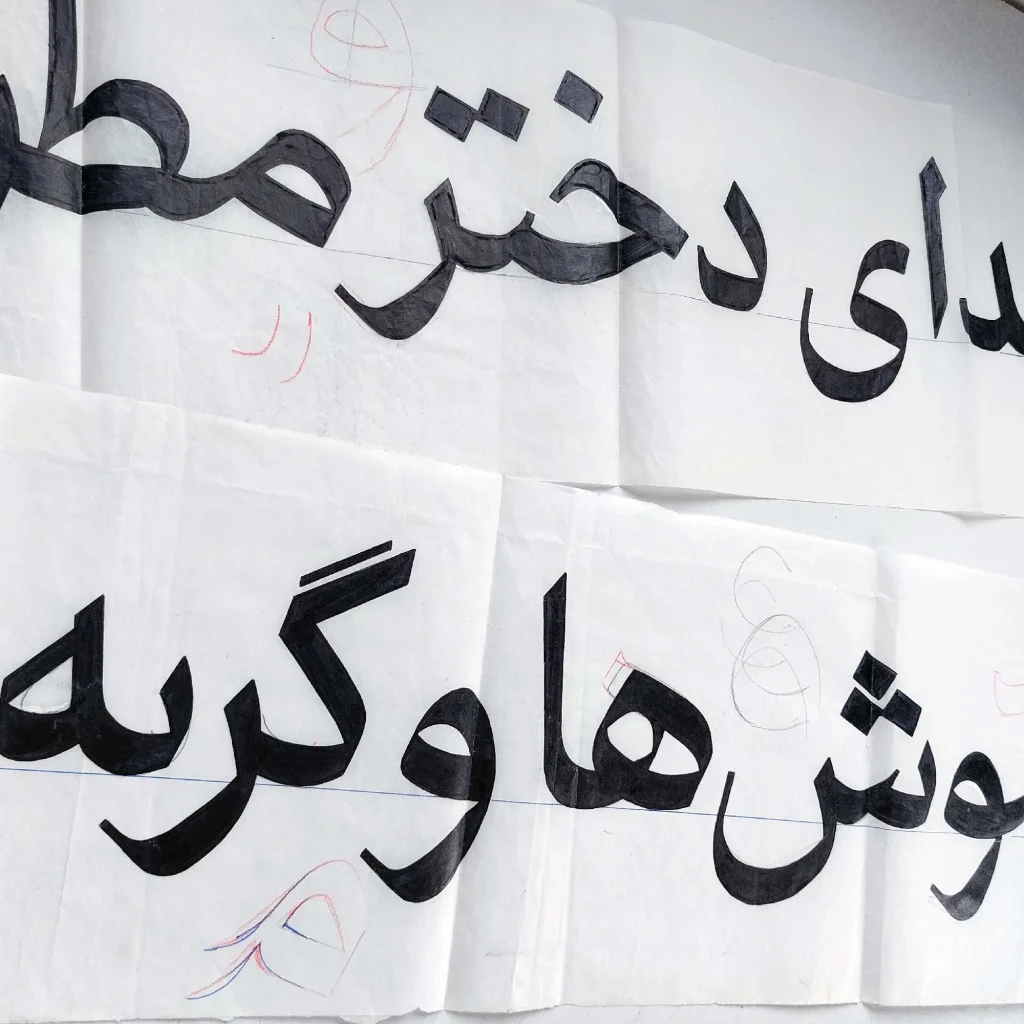 دای دختر مط
موش‌ها و گربه